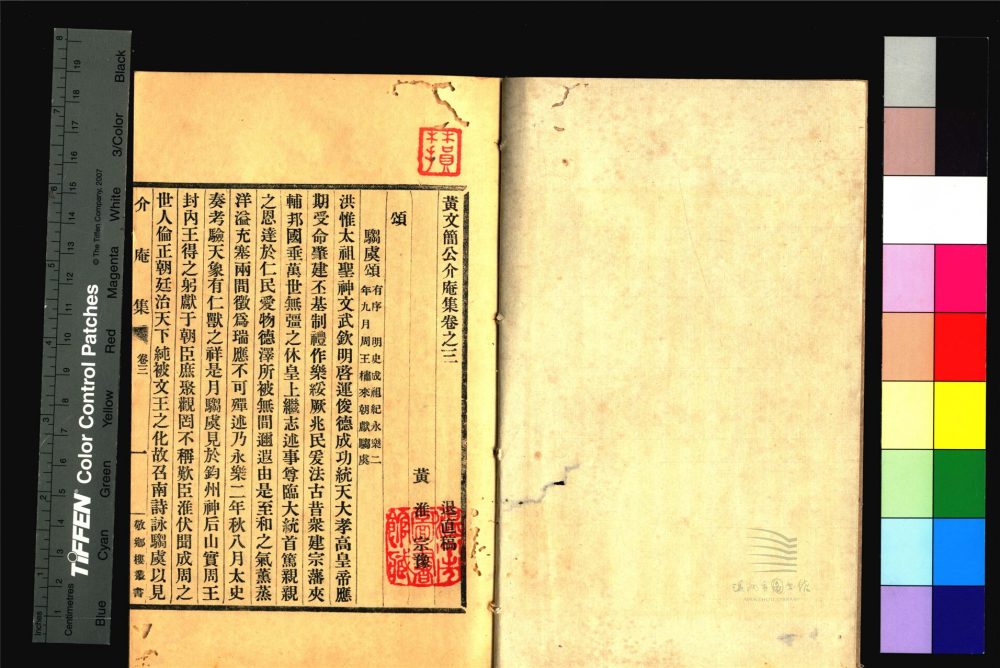 黃文簡公介庵集卷之三
退直稿
黃淮宗豫
頌
騶虞頌有序 明史成祖紀永樂二
年九月周王橚來朝獻騶虞
洪惟太祖聖神文武欽明啓運俊德成功統天大孝高皇帝應
期受命肇建丕基制禮作樂綏厥兆民爰法古昔衆建宗藩夾
輔邦國垂萬世無彊之休皇上繼志述事尊臨大統首篤親親
之恩達於仁民愛物德澤所被無間邇遐由是至和之氣薰蒸
洋溢充塞兩間徵爲瑞應不可殫述乃永樂二年秋八月太史
奏考驗天象有仁獸之祥是月騶虞見於鈞州神后山實周王
封內王得之躬獻于朝臣庶聚觀罔不稱歎臣淮伏聞成周之
世人倫正朝廷治天下純被文王之化故召南詩詠騶虞以見
介庵集 卷三 一 敬鄉樓叢書
Inches
Centimetres
TIFFEN Color Control Patches
© The Tiffen Company, 2007
Blue
Cyan
Green
Yellow
Red
Magenta
White
3/Color
Black